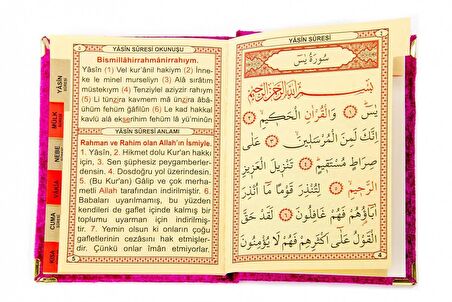 YÂSİN SÛRESİ OKUNUŞU
Bismillâhirrahmânirrahym.
Yâsîn (1) Vel kur'ânil hakiym (2) İnne-
ke le minel murseliyn (3) Alâ sırâtın
müstekıym (4) Tenziylel aziyzir rahıym
(5) Li tünzira kavmem mâ ünzira âbâ-
ühüm fehüm ğâfilûn (6) Le kad hakkal
kavlü alâ ekserihim fehüm lâ yü'minûn
YÂSİN SÛRESİ ANLAMI
Rahman ve Rahim olan Allah'ın İsmiyle.
1. Yâsîn, 2. Hikmet dolu Kur'an hakkı
için, 3. Sen şüphesiz peygamberler-
densin. 4. Dosdoğru yol üzerindesin.
5. (Bu Kur'an) Gâlip ve çok merha-
metli Allah tarafından indirilmiştir. 6.
Babaları uyarılmamış, bu yüzden
kendileri de gaflet içinde kalmış bir
toplumu uyarman için indirilmiş-
tir. 7. Yemin olsun ki onların çoğu
gafletlerinin cezasını hak etmişler-
dir. Çünkü onlar iman etmiyorlar.
5
YÂSİN
SÛRESİ
MÜLK
NEBE
VAKIA
CUMA
KISA
YÂSİN SÛRESİ
سُورَةُ يٰسٓ
بِسْمِ اللّٰهِ الرَّحْمٰنِ الرَّحِيمِ
يٰسٓ ﴿١﴾ وَالْقُرْاٰنِ الْحَكِيمِ ﴿٢﴾
اِنَّكَ لَمِنَ الْمُرْسَلِينَ ﴿٣﴾ عَلٰى
صِرَاطٍ مُسْتَقِيمٍ ﴿٤﴾ تَنْزِيلَ الْعَزِيزِ
الرَّحِيمِ ﴿٥﴾ لِتُنْذِرَ قَوْمًا مَٓا اُنْذِرَ
اٰبَٓاؤُ۬هُمْ فَهُمْ غَافِلُونَ ﴿٦﴾ لَقَدْ حَقَّ
الْقَوْلُ عَلٰٓى اَكْثَرِهِمْ فَهُمْ لَا يُؤْمِنُونَ
4